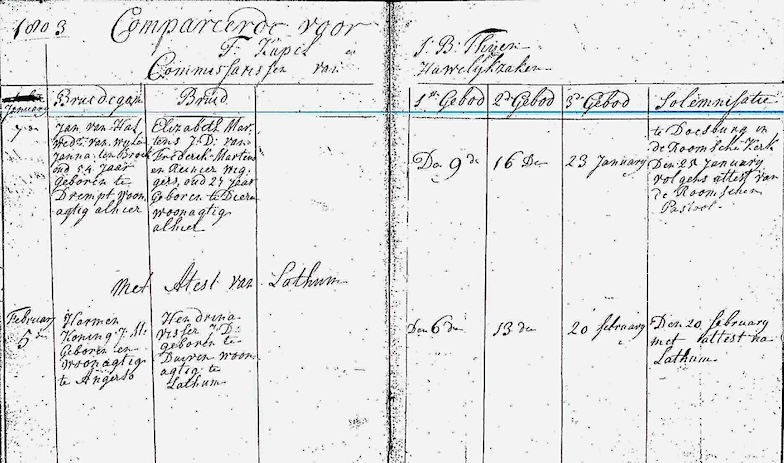 1803 Compareerde voor
F. Kupel en
Commissarissen van
J: B: Thijen
Huwelijkzaken
January
Bruidegam
Bruid
1ste Gebod
2de Gebod
3de Gebod
Solemnisatie
7den
Jan van Hal
wedr. van wyle
Janna ten Broek
oud 54 Jaar
Geboren te
Drempt woon
agtig alhier
Elizabeth Mar-
tens J: D: van
Frederik Martens
en Reinier Weg-
gers, oud 27 jaar
Geboren te Dieren
woonagtig
alhier
Den 9de
16 Den
23 January
te Doesburg in
de Roomsche Kerk
Den 25 January
volgens attest van
de Roomschen
Pastoor
Met Atest van Lathum
February
5de
Harmen
Koning J: M:
Geboren en
woonagtig
te Angerlo
Hendrina
Visser J: D:
Geboren te
Duiven woon-
agtig te
Lathum
Den 6den
13 den
20 february
Den 20 february
met attest na
Lathum